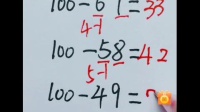 100-67=33
4-1
100-58=42
5-1
100-49=?